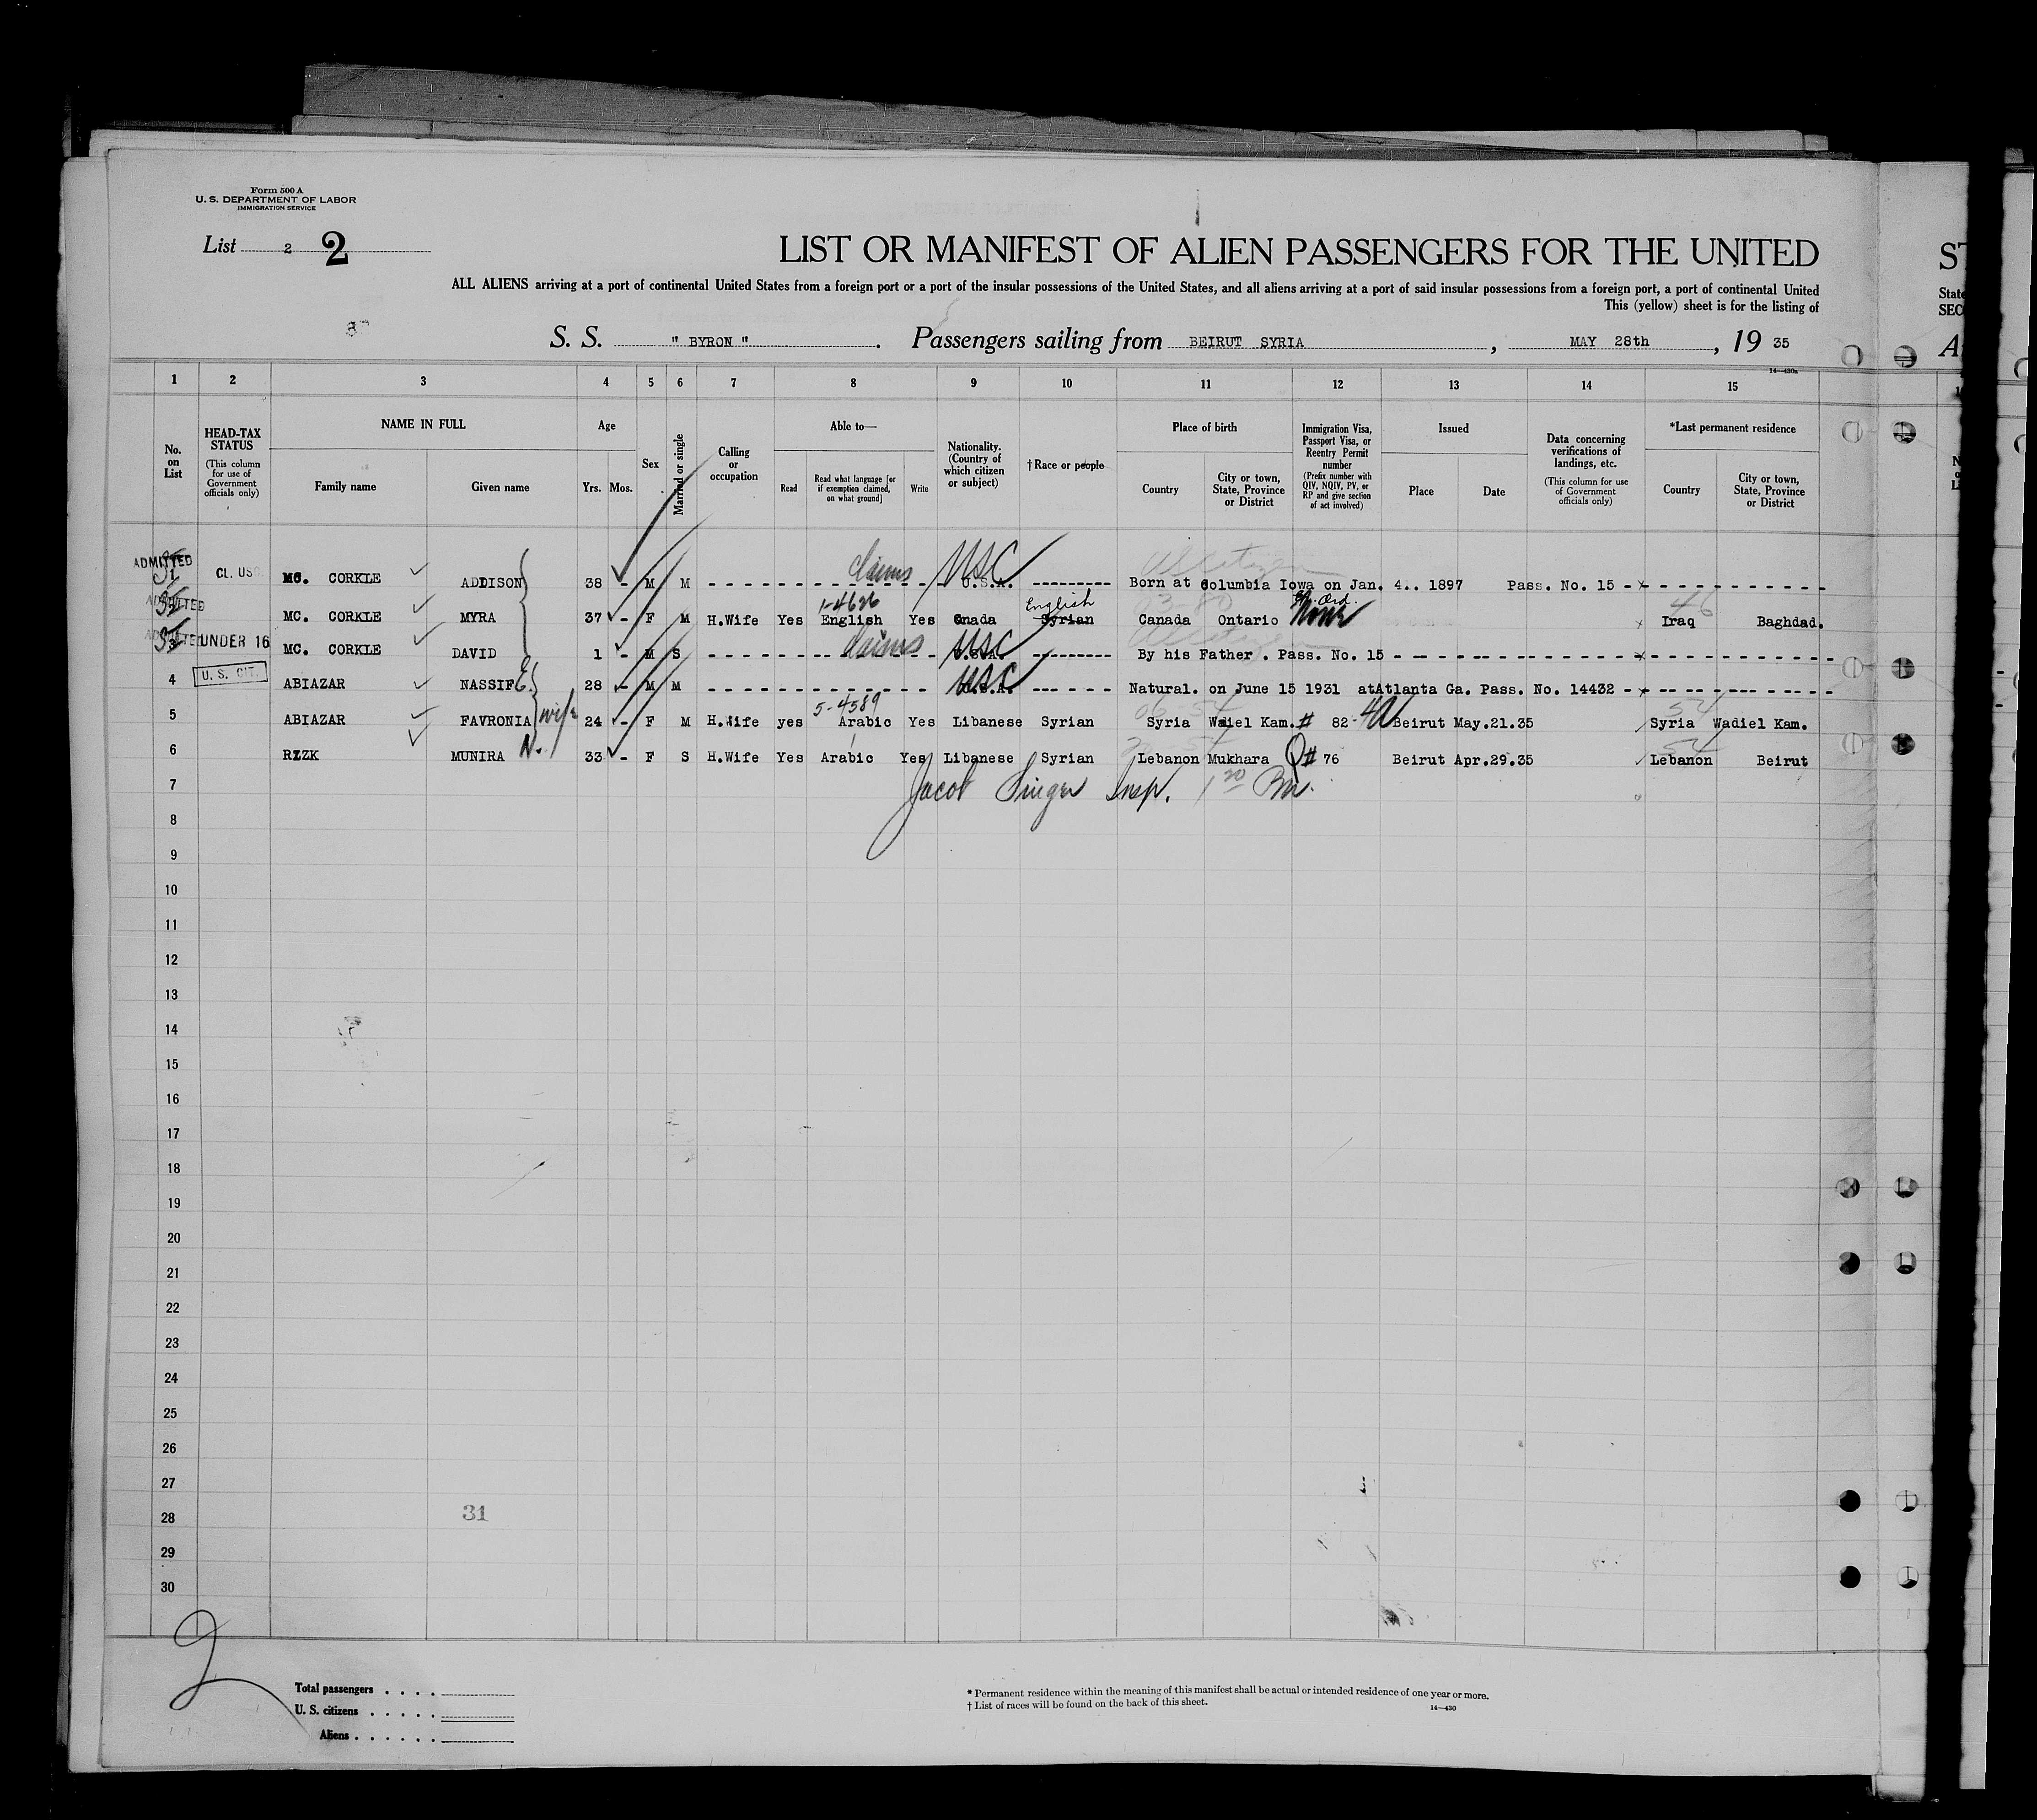 Form 500 A
U. S. DEPARTMENT OF LABOR
IMMIGRATION SERVICE
List 2 2
LIST OR MANIFEST OF ALIEN PASSENGERS FOR THE UNITED
ALL ALIENS arriving at a port of continental United States from a foreign port or a port of the insular possessions of the United States, and all aliens arriving at a port of said insular possessions from a foreign port, a port of continental United
This (yellow) sheet is for the listing of
S. S. " BYRON " . Passengers sailing from BEIRUT SYRIA , MAY 28th , 19 35
14—430a
1 2 3 4 5 6 7 8 9 10 11 12 13 14 15
No. on List
HEAD-TAX STATUS (This column for use of Government officials only)
NAME IN FULL
Family name Given name
Age
Yrs. Mos.
Sex
Married or single
Calling or occupation
Able to—
Read Read what language [or if exemption claimed, on what ground] Write
Nationality. (Country of which citizen or subject)
†Race or people
Place of birth
Country City or town, State, Province or District
Immigration Visa, Passport Visa, or Reentry Permit number (Prefix number with QIV, NQIV, PV, or RP and give section of act involved)
Issued
Place Date
Data concerning verifications of landings, etc. (This column for use of Government officials only)
*Last permanent residence
Country City or town, State, Province or District
US Citizen
ADMITTED 1 CL. US MC. CORKLE ADDISON 38 - M M claims USC U.S.A. Born at Columbia Iowa on Jan. 4.. 1897 Pass. No. 15
1-4626 English 23-80 Ord. 46
ADMITTED MC. CORKLE MYRA 37 - F M H.Wife Yes English Yes Cnada Syrian Canada Ontario None Iraq Baghdad.
US Citizen
ADMITTED 3 UNDER 16 MC. CORKLE DAVID 1 - M S claims USC U.S.A. By his Father . Pass. No. 15
4 U. S. CIT. ABIAZAR NASSIF E. 28 - M M USC U.S.A. Natural. on June 15 1931 atAtlanta Ga. Pass. No. 14432
wife 5-4589 06-54 54
5 ABIAZAR FAVRONIA 24 - F M H.Wife yes Arabic Yes Libanese Syrian Syria Wadiel Kam. # 82 Beirut May.21.35 Syria Wadiel Kam.
54
6 RIZK MUNIRA N. 33 - F S H.Wife Yes Arabic Yes Libanese Syrian Lebanon Mukhara Q# 76 Beirut Apr.29.35 Lebanon Beirut
7 Jacob Singer Insp. 1 20 Pm.
8
9
10
11
12
13
14
15
16
17
18
19
20
21
22
23
24
25
26
27
28 31
29
30
2
Total passengers . . . .
U. S. citizens . . . . .
Aliens . . . . . .
* Permanent residence within the meaning of this manifest shall be actual or intended residence of one year or more.
† List of races will be found on the back of this sheet.
14—430
ST
State
SEC